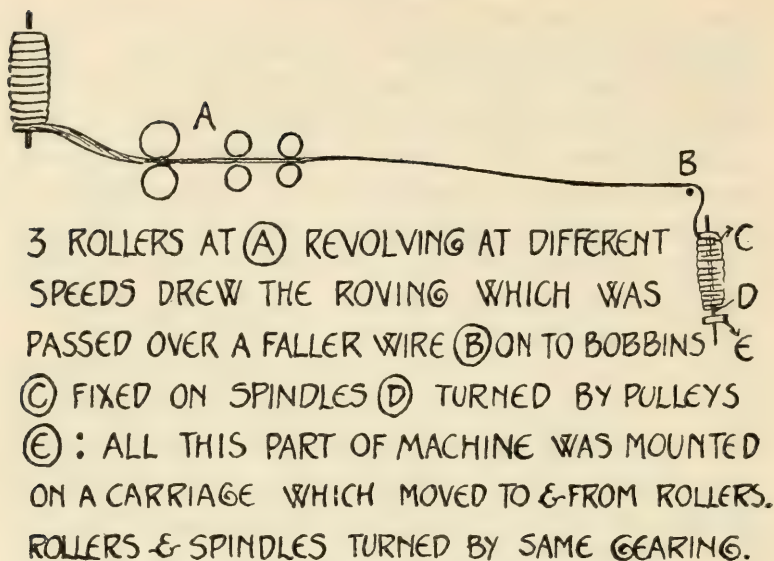 A
B
3 ROLLERS AT Ⓐ REVOLVING AT DIFFERENT
C
SPEEDS DREW THE ROVING WHICH WAS
D
PASSED OVER A FALLER WIRE Ⓑ ON TO BOBBINS
E
Ⓒ FIXED ON SPINDLES Ⓓ TURNED BY PULLEYS
Ⓔ: ALL THIS PART OF MACHINE WAS MOUNTED
ON A CARRIAGE WHICH MOVED TO & FROM ROLLERS.
ROLLERS & SPINDLES TURNED BY SAME GEARING.